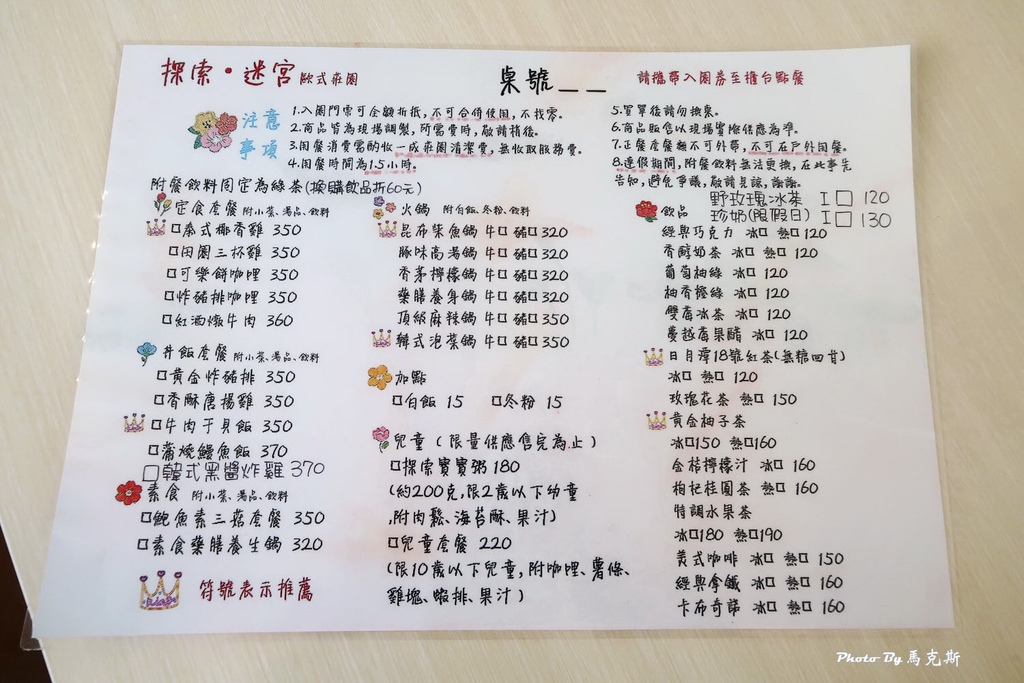 探索·迷宮歐式莊園
桌號＿＿
請攜帶入園券至櫃台點餐
注意
事項
1.入園門票可全額折抵,不可合併使用,不找零。
2.商品皆為現場調製,所需費時,敬請稍後。
3.用餐消費需酌收一成莊園清潔費,無收取服務費。
4.用餐時間為1.5小時。
5.買單後請勿換桌。
6.商品販售以現場實際供應為準。
7.正餐套餐類不可外帶,不可在戶外用餐。
8.連假期間,附餐飲料無法更換,在此事先
告知,避免爭議,敬請見諒,謝謝。
附餐飲料固定為綠茶(換購飲品折60元)
定食套餐 附小菜、湯品、飲料
□泰式椰香雞 350
□田園三杯雞 350
□可樂餅咖哩 350
□炸豬排咖哩 350
□紅酒燉牛肉 360
丼飯套餐 附小菜、湯品、飲料
□黃金炸豬排 350
□香酥唐揚雞 350
□牛肉干貝飯 350
□蒲燒鰻魚飯 370
□韓式黑醬炸雞 370
素食 附小菜、湯品、飲料
□鮑魚素三菇套餐 350
□素食藥膳養生鍋 320
符號表示推薦
火鍋 附白飯、冬粉、飲料
昆布柴魚鍋 牛□ 豬□320
豚味高湯鍋 牛□ 豬□320
香茅檸檬鍋 牛□ 豬□320
藥膳養身鍋 牛□ 豬□320
頂級麻辣鍋 牛□ 豬□350
韓式泡菜鍋 牛□ 豬□350
加點
□白飯 15 □冬粉 15
兒童 (限量供應售完為止)
□探索寶寶粥180
(約200克,限2歲以下幼童
,附肉鬆、海苔酥、果汁)
□兒童套餐 220
(限10歲以下兒童,附咖哩、薯條、
雞塊、蝦排、果汁)
野玫瑰冰茶 I□ 120
飲品 珍奶(限假日) I□ 130
經典巧克力 冰□ 熱□120
香醇奶茶 冰□ 熱□ 120
葡萄柚綠 冰□ 120
柚香撥綠 冰□ 120
雙莓冰茶 冰□ 120
蔓越莓果醋 冰□ 120
日月潭18號紅茶(無糖回甘)
冰□ 熱□ 120
玫瑰花茶 熱□ 150
黃金柚子茶
冰□150 熱□160
金桔檸檬汁 冰□ 160
枸杞桂圓茶 熱□ 160
特調水果茶
冰□180 熱□190
美式咖啡 冰□ 熱□ 150
經典拿鐵 冰□ 熱□ 160
卡布奇諾 冰□ 熱□ 160
Photo By 馬克斯